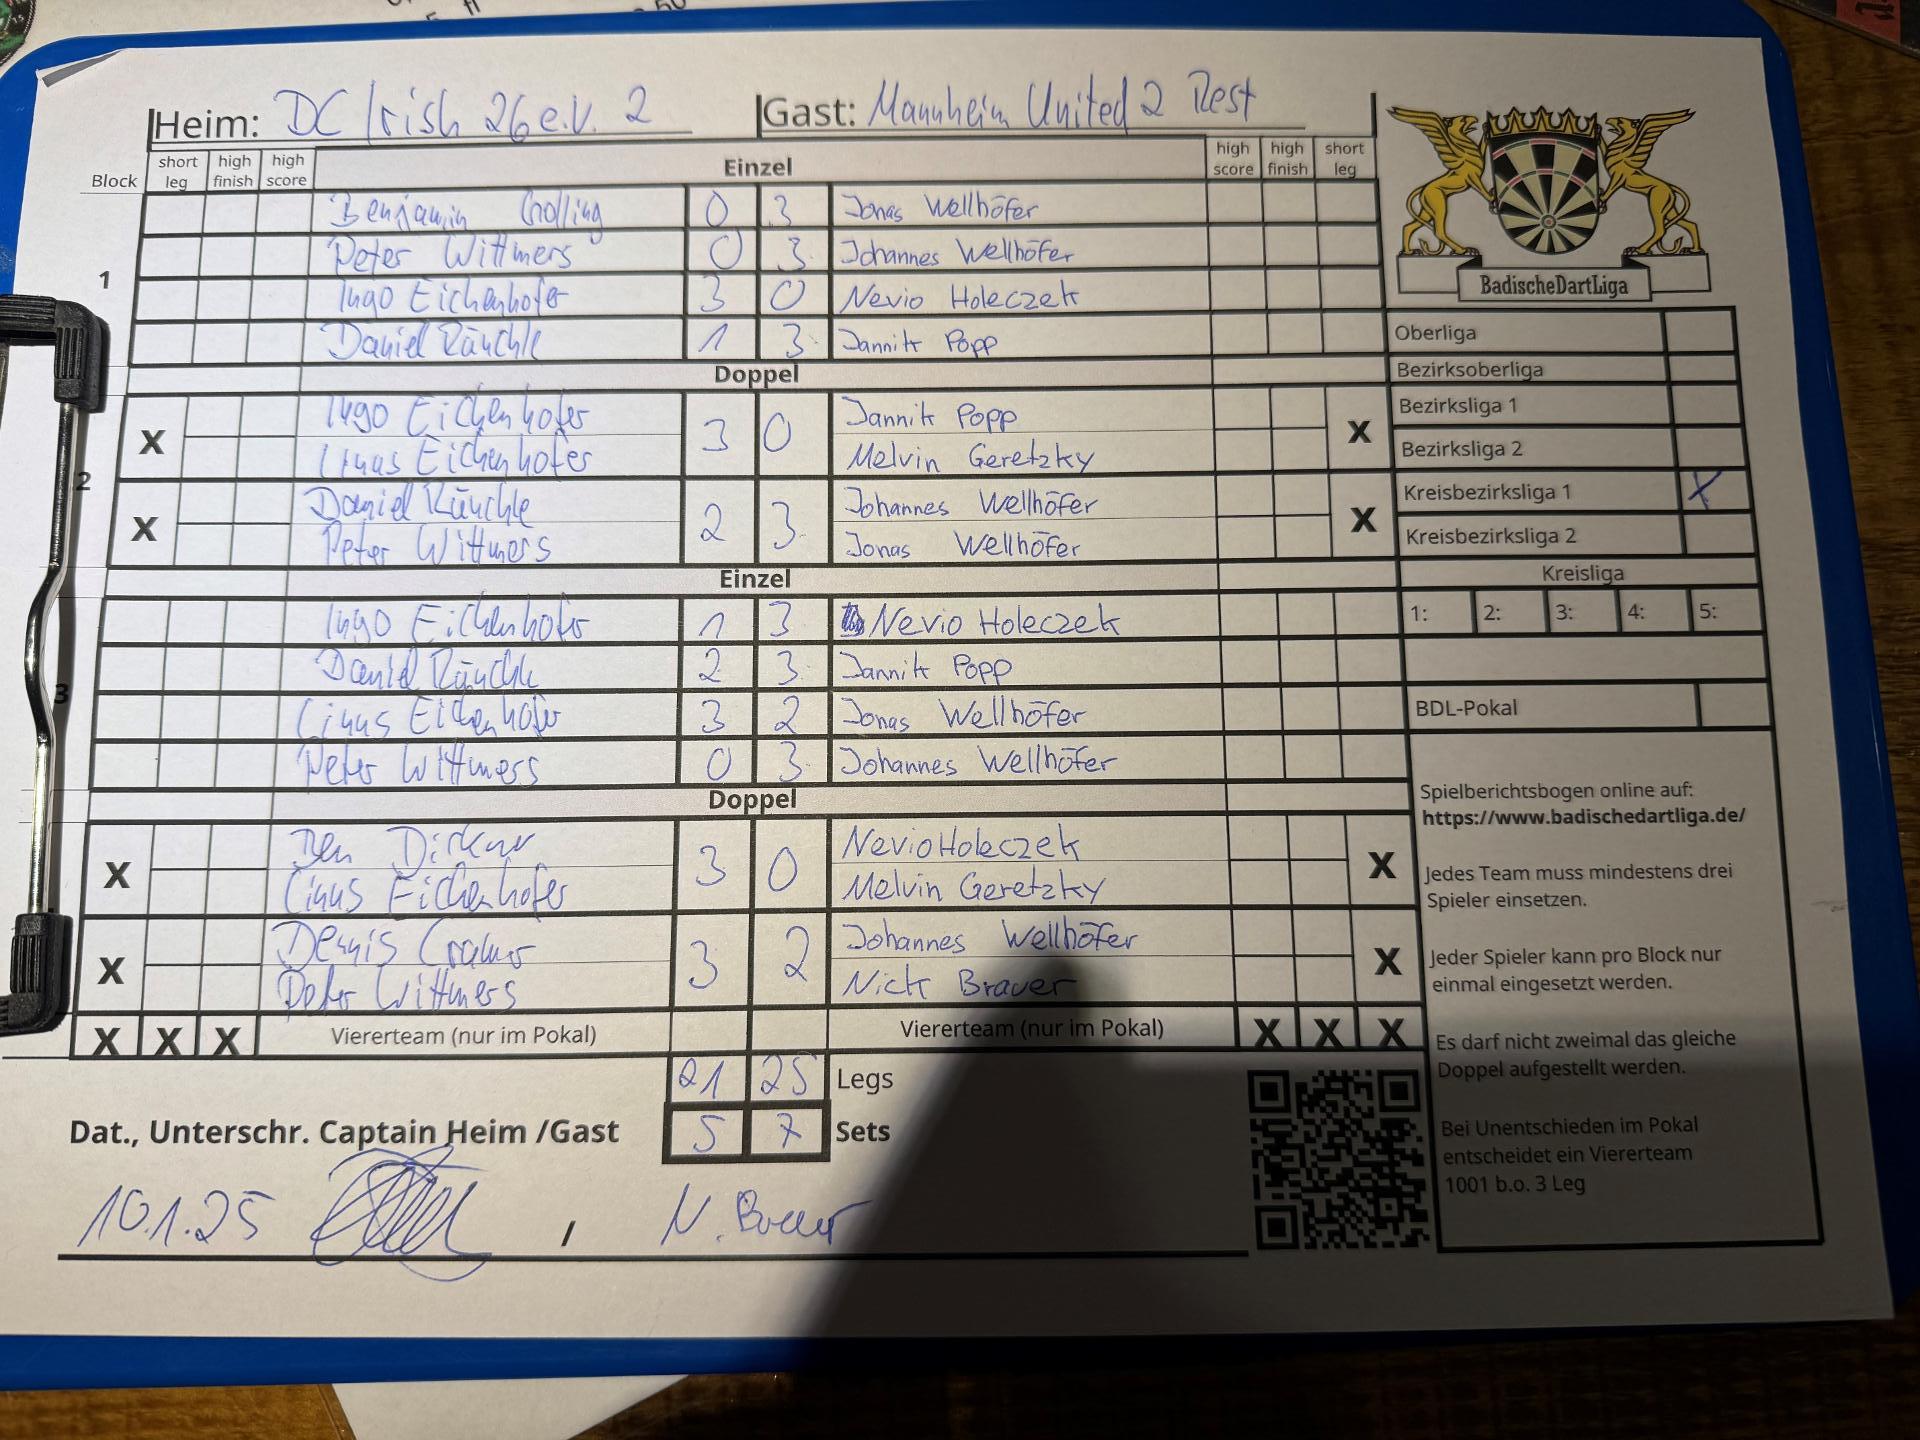 Heim: DC Irish 26 e.V. 2 Gast: Mannheim United 2 Rest
Block short leg high finish high score Einzel high score high finish short leg
1
Benjamin Golling 0 3 Jonas Wellhöfer
Peter Wittmers 0 3 Johannes Wellhöfer
Ingo Eichenhofer 3 0 Nevio Holeczek
Daniel Räuchle 1 3 Jannik Popp
Doppel
2
X Ingo Eichenhofer 3 0 Jannik Popp X
Linus Eichenhofer Melvin Geretzky
X Daniel Räuchle 2 3 Johannes Wellhöfer X
Peter Wittmers Jonas Wellhöfer
Einzel
3
Ingo Eichenhofer 1 3 Nevio Holeczek
Daniel Räuchle 2 3 Jannik Popp
Linus Eichenhofer 3 2 Jonas Wellhöfer
Peter Wittmers 0 3 Johannes Wellhöfer
Doppel
X Ben 3 0 Nevio Holeczek X
Linus Eichenhofer Melvin Geretzky
X Dennis 3 2 Johannes Wellhöfer X
Peter Wittmers Nick Brauer
X X X Viererteam (nur im Pokal) Viererteam (nur im Pokal) X X X
21 25 Legs
5 7 Sets
Dat., Unterschr. Captain Heim /Gast
10.1.25 / N. Brauer
BadischeDartLiga
Oberliga
Bezirksoberliga
Bezirksliga 1
Bezirksliga 2
Kreisbezirksliga 1 X
Kreisbezirksliga 2
Kreisliga
1: 2: 3: 4: 5:
BDL-Pokal
Spielberichtsbogen online auf:
https://www.badischedartliga.de/
Jedes Team muss mindestens drei
Spieler einsetzen.
Jeder Spieler kann pro Block nur
einmal eingesetzt werden.
Es darf nicht zweimal das gleiche
Doppel aufgestellt werden.
Bei Unentschieden im Pokal
entscheidet ein Viererteam
1001 b.o. 3 Leg